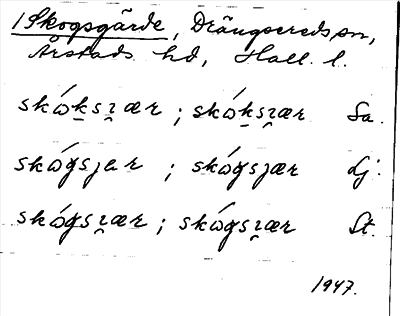 1 Skogsgärde, Drängsereds sn,
Årstads hd, Hall. l.
skók̠sɪ̯ær ; skók̠sɪ̯ær Sa.
skógsȷar ; skógsȷær Lj.
skógsɪ̯ær ; skógsɪ̯ær St.
1947.